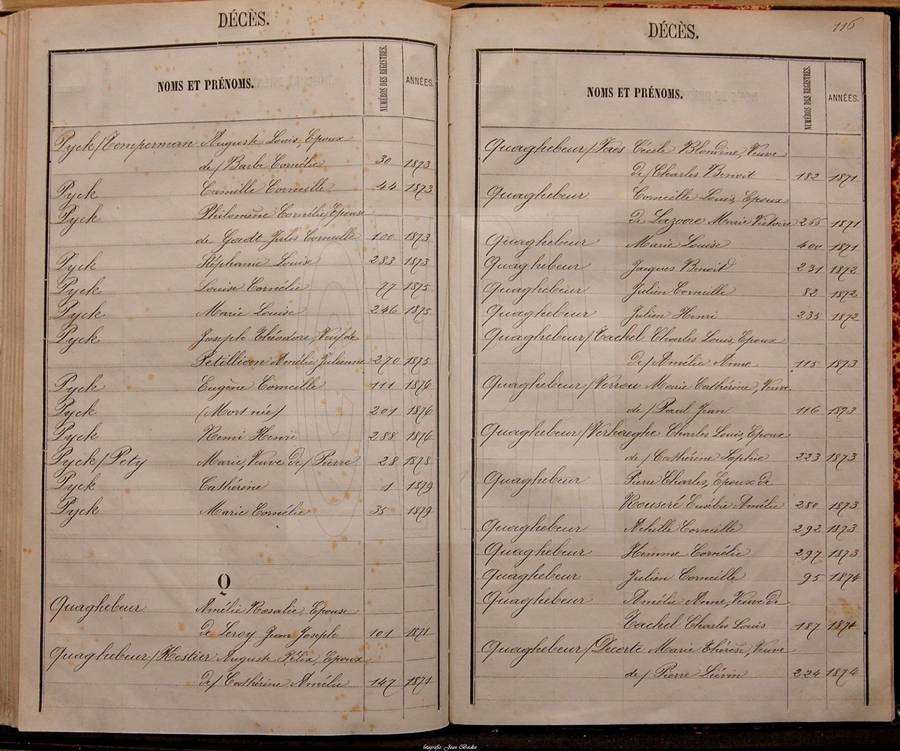 DÉCÈS.
NOMS ET PRÉNOMS.
NUMÉROS DES REGISTRES.
ANNÉES.
Pyck /Temperman Auguste Louis, Epoux
de/ Barbe Cornélie 30 1873
Pyck Camille Corneille 44 1873
Pyck Philomène Cornélie, Epouse
de Gadt Jules Corneille 100 1873
Pyck Stéphanie Louise 283 1873
Pyck Louise Cornélie 77 1875
Pyck Marie Louise 246 1875
Pyck Joseph Théodore, Veuf de
Petillion Amélie Julienne 270 1875
Pyck Eugène Corneille 111 1876
Pyck (Mort née) 201 1876
Pyck Remi Henri 288 1876
Pyck / Pety Marie, Veuve de/ Pierre 28 1878
Pyck Cathérine 1 1879
Pyck Marie Cornélie 35 1879
Q
Quaghebeur Amélie Rosalie Epouse
de Leroy Jean Joseph 101 1871
Quaghebeur /Hostier Auguste Félix, Epoux
de/ Cathérine Amélie 147 1871
DÉCÈS.
116
NOMS ET PRÉNOMS.
NUMÉROS DES REGISTRES.
ANNÉES.
Quaghebeur / Cécile Blondine, Veuve
de/ Charles Benoit 182 1871
Quaghebeur Corneille Louis, Epoux
de Lazoore Marie Victoire 266 1871
Quaghebeur Marie Louise 400 1871
Quaghebeur Jacques Benoit 231 1872
Quaghebeur Julien Corneille 82 1872
Quaghebeur Julien Henri 235 1872
Quaghebeur /Tachel Charles Louis, Epoux
de/ Amélie Anne 115 1873
Quaghebeur /Verrou Marie Cathérine, Veuve
de/ Paul Jean 116 1873
Quaghebeur /Verhaeghe Charles Louis, Epoux
de/ Cathérine Sophie 223 1873
Quaghebeur Pierre Charles, Epoux de
Rouseré Eusébie Amélie 280 1873
Quaghebeur Achille Corneille 292 1873
Quaghebeur Hemme Cornélie 297 1873
Quaghebeur Julien Corneille 95 1874
Quaghebeur Amélie Anne, Veuve de
Tachel Charles Louis 187 1874
Quaghebeur /Decorte Marie Thérèse, Veuve
de/ Pierre Liévin 224 1874